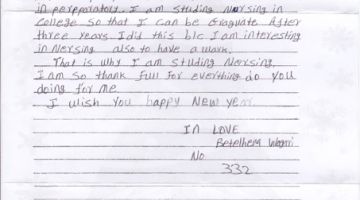 in perpporatory. I am studing Nursing in
College so that I can be Graguate After
three years I did this b/c I am interesting
in Nersing also to have a work.
That is why I am studing Nersing.
I am so thank full for everthing do you
doing for me
I wish you happy New year.
In LOVE
Betelhem
No
332